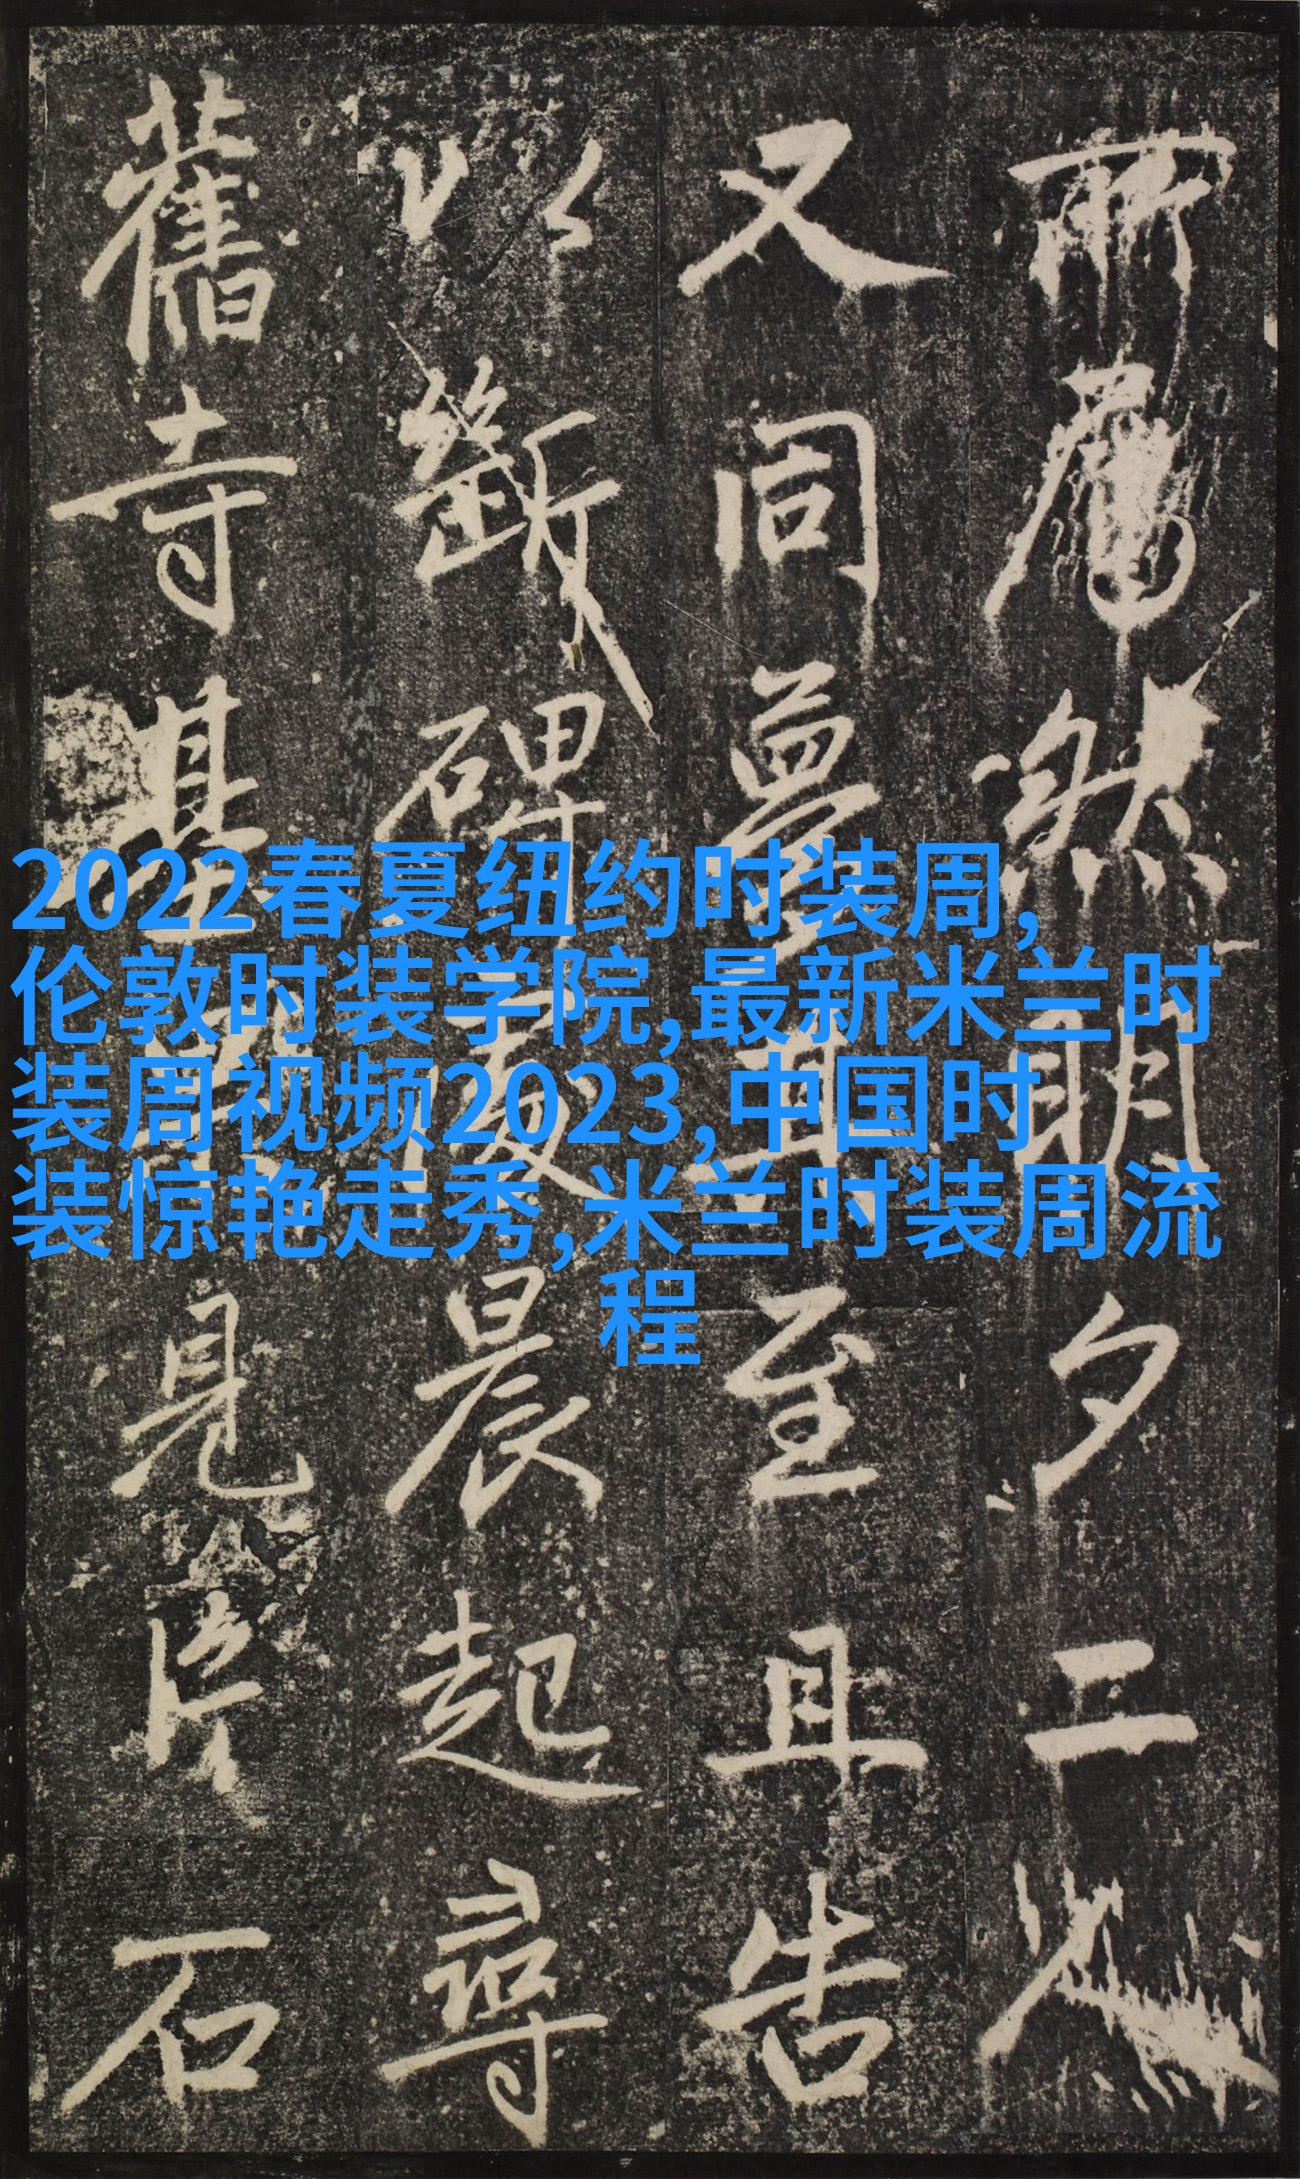 然明夕二
又同夢至且告
以斷碑晨起尋
舊寺基見片石
2022春夏纽约时装周,
伦敦时装学院,最新米兰时
装周视频2023,中国时
装惊艳走秀,米兰时装周流
程